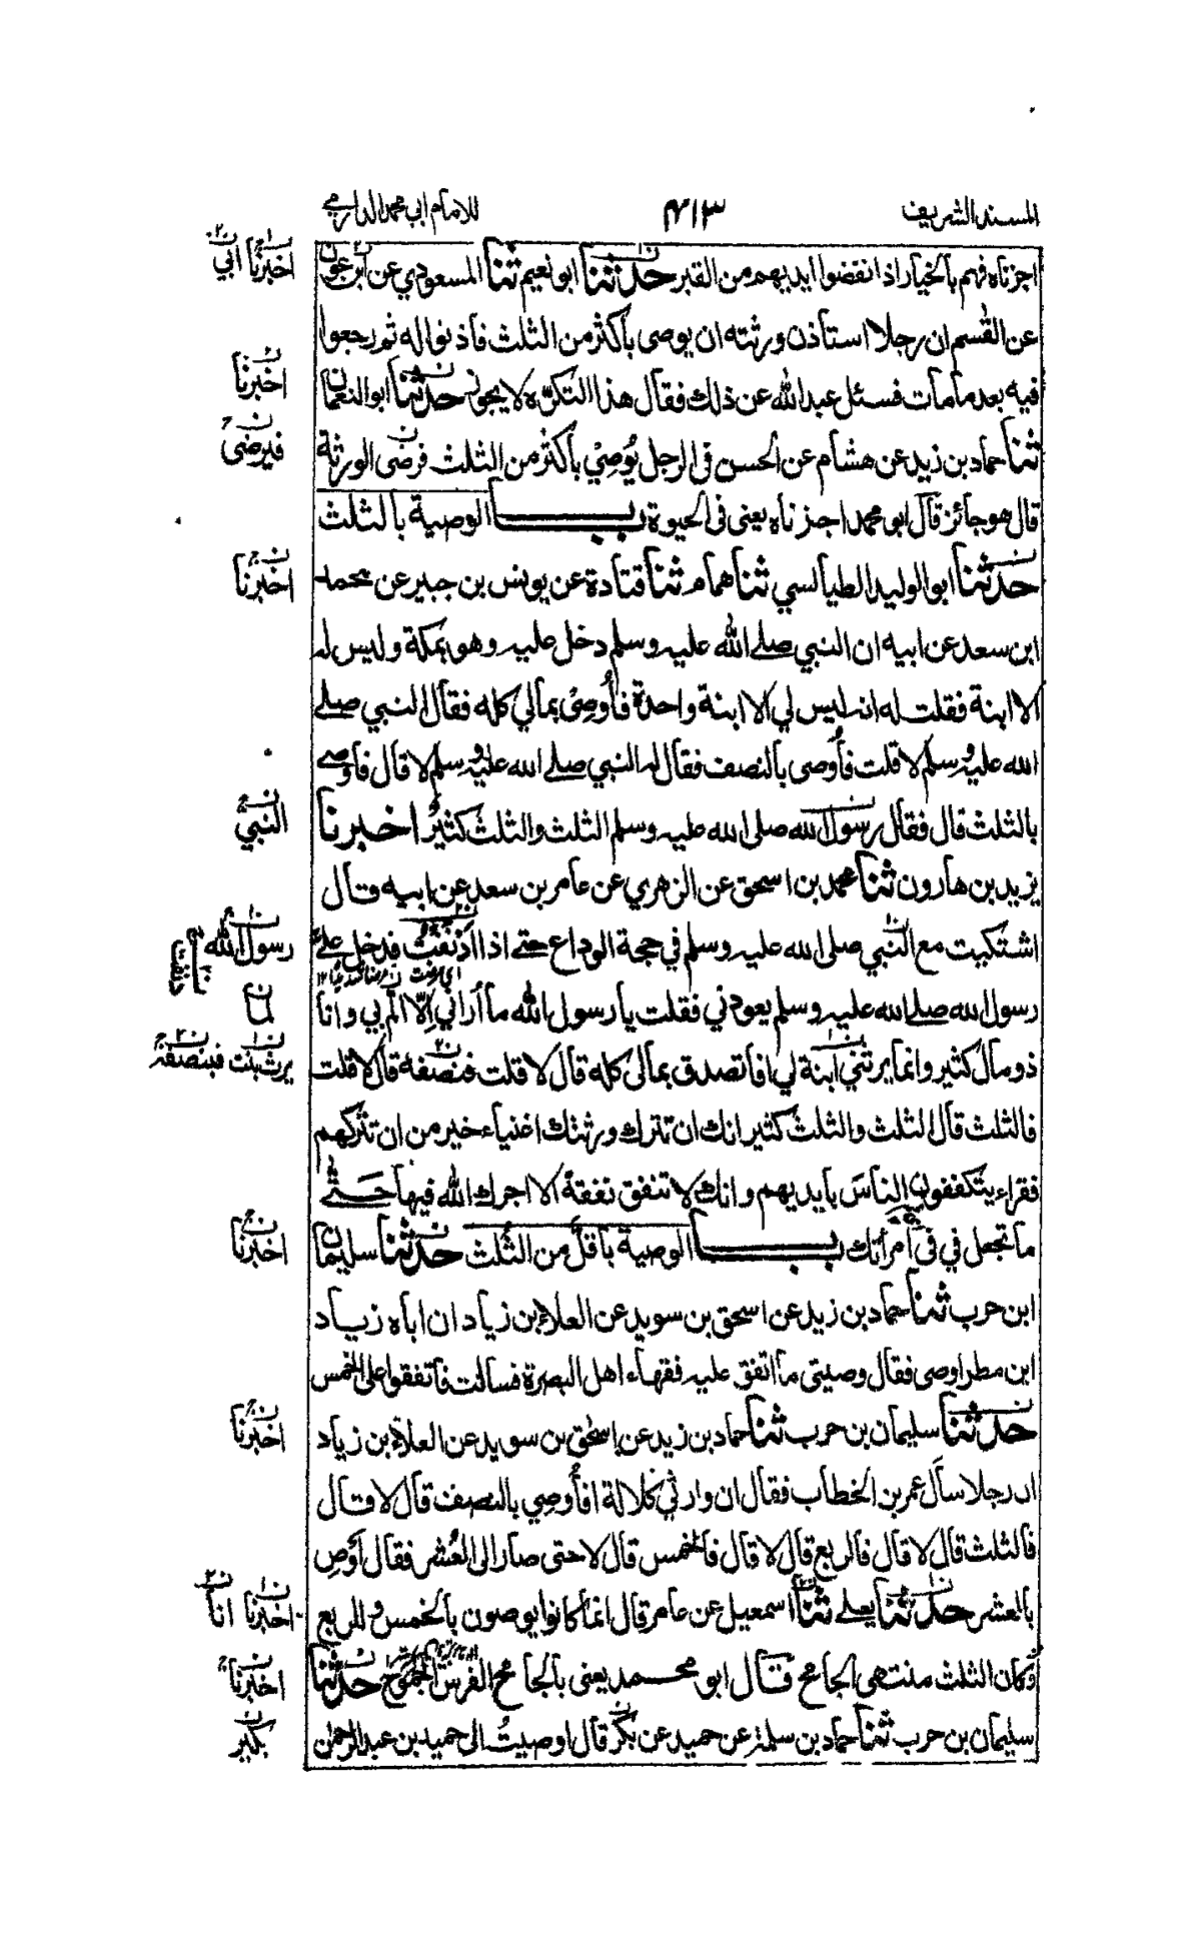 المسند الشريف ٤١٣ للامام ابي محمد الدارمي
اجزناه فهم بالخيار اذا نفضوا ايديهم من القبر حدثنا ابو نعيم ثنا المسعودي عن ابن عون
اخبرنا ابي
عن القسم ان رجلا استأذن ورثته ان يوصى بأكثر من الثلث فأذنوا له ثم رجعوا
فيه بعد ما مات فسئل عبد الله عن ذلك فقال هذا التكره لا يجوز حدثنا ابو النعمان
اخبرنا
ثنا حماد بن زيد عن هشام عن الحسن في الرجل يُوصِيْ بأكثر من الثلث فرضى الورثة
فيرضى
قال هو جائز قال ابو محمد اجزناه يعنى في الحيوة باب الوصية بالثلث
حدثنا ابو الوليد الطيالسي ثنا همام ثنا قتادة عن يونس بن جبير عن محمد
اخبرنا
ابن سعد عن ابيه ان النبي صلے الله عليه وسلم دخل عليه وهو بمكة وليس له
الا ابنة فقلت له انه ليس لي الا ابنة واحدة فأُوصِىْ بمالي كله فقال النبي صلے
الله عليه وسلم لا قلت فأُوصى بالنصف فقال له النبي صلے الله عليه وسلم لا قال فأوصے
بالثلث قال فقال رسول الله صلى الله عليه وسلم الثلث والثلث كثيرٌ اخبرنا
النبي
يزيد بن هارون ثنا محمد بن اسحق عن الزهري عن عامر بن سعد عن ابيه قال
اشتكيت مع النبي صلى الله عليه وسلم في حجة الوداع حتے اذا ادنفت فدخل علے
رسول الله
رسول الله صلے الله عليه وسلم يعودني فقلت يا رسول الله ما أُراني إلّا ألم بي وانا
لما
ذو مال كثير وانما يرثني ابنة لي افاتصدق بمالى كله قال لا قلت فنصفه قال لا قلت
يرث بنت فبنصفه
فالثلث قال الثلث والثلث كثير انك ان تترك ورثتك اغنياء خير من ان تتركهم
فقراء يتكففون الناسَ بايديهم وانك لا تنفق نفقة الا اجرك الله فيها حَتّٰى
ما تجعل في في امرأتك باب الوصية باقلّ من الثلث حدثنا سليمان
اخبرنا
ابن حرب ثنا حماد بن زيد عن اسحق بن سويد عن العلاء بن زياد ان اباه زياد
ابن مطر اوصى فقال وصيتى ما اتفق عليه فقهاء اهل البصرة فسألت فاتفقوا على الخمس
حدثنا سليمان بن حرب ثنا حماد بن زيد عن اسحٰق بن سويد عن العلاء بن زياد
اخبرنا
ان رجلا سأل عمر بن الخطاب فقال ان وارثي كلالة افأُوصِي بالنصف قال لا قال
فالثلث قال لا قال فالربع قال لا قال فالخمس قال لا حتى صار الى العُشر فقال أَوصِ
بالعشر حدثنا يعلے ثنا اسمعيل عن عامر قال انما كانوا يوصون بالخمس والربع
اخبرنا انا
وكان الثلث منتهى الجامح قال ابو محمد يعنى بالجامح الفرس الجموح حدثنا
اخبرنا
سليمان بن حرب ثنا حماد بن سلمة عن حميد عن بكر قال اوصيت الى حميد بن عبد الرحمٰن
بكير